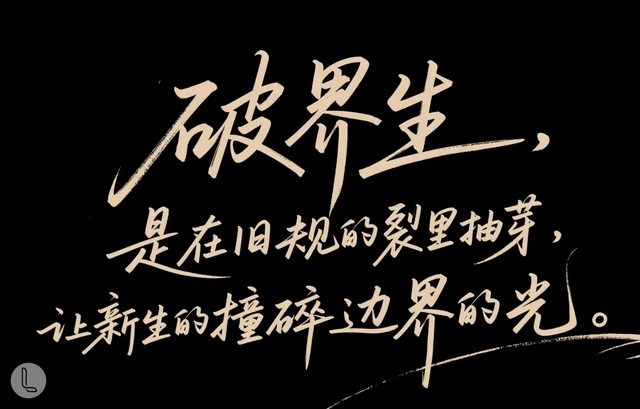 破界生，
是在旧规的裂里抽芽，
让新生的撞碎边界的光。
L